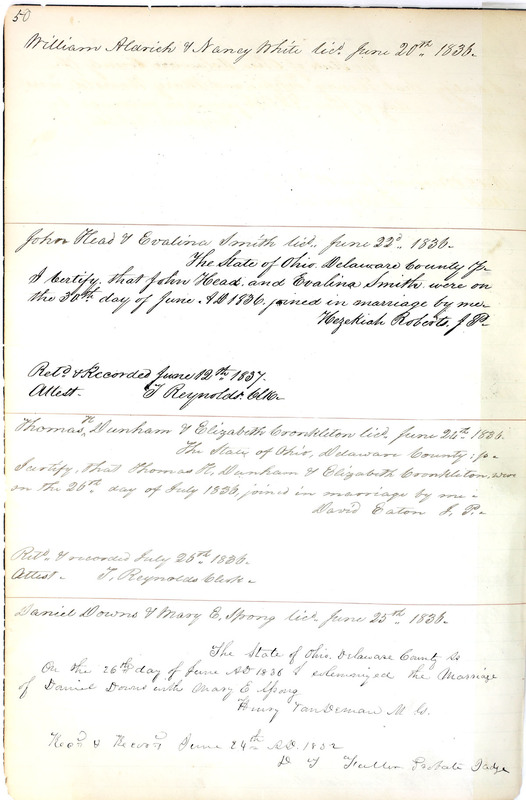 50
William Aldrich & Nancy White lic^d. June 20th 1836.
John Head & Evalina Smith lic^d. June 22^d. 1836.
The State of Ohio, Delaware County Ss
I Certify, that John Head, and Evalina Smith, were on
the 30th day of June AD 1836, joined in marriage by me
Hezekiah Roberts, J P.
Ret^d. & Recorded June 12th 1837.
Attest. T Reynolds. Clk.
Thomas H. Dunham & Elizabeth Cronkleton lic^d. June 24th. 1836.
The State of Ohio, Delaware County; ss
I certify, that Thomas H. Dunham & Elizabeth Cronkleton, were
on the 26th day of July 1836, joined in marriage by me
David Eaton J. P.
Ret^d. & recorded July 25th 1836.
Attest. T. Reynolds Clerk.
Daniel Downs & Mary E. Spong lic^d. June 25th. 1836.
The State of Ohio, Delaware County Ss
On the 26th day of June AD 1836 I solemnized the Marriage
of Daniel Downs with Mary E Sparg
Henry VanDeman M. G.
& Record June 24th A.D. 1852
D T Fuller Probate Judge